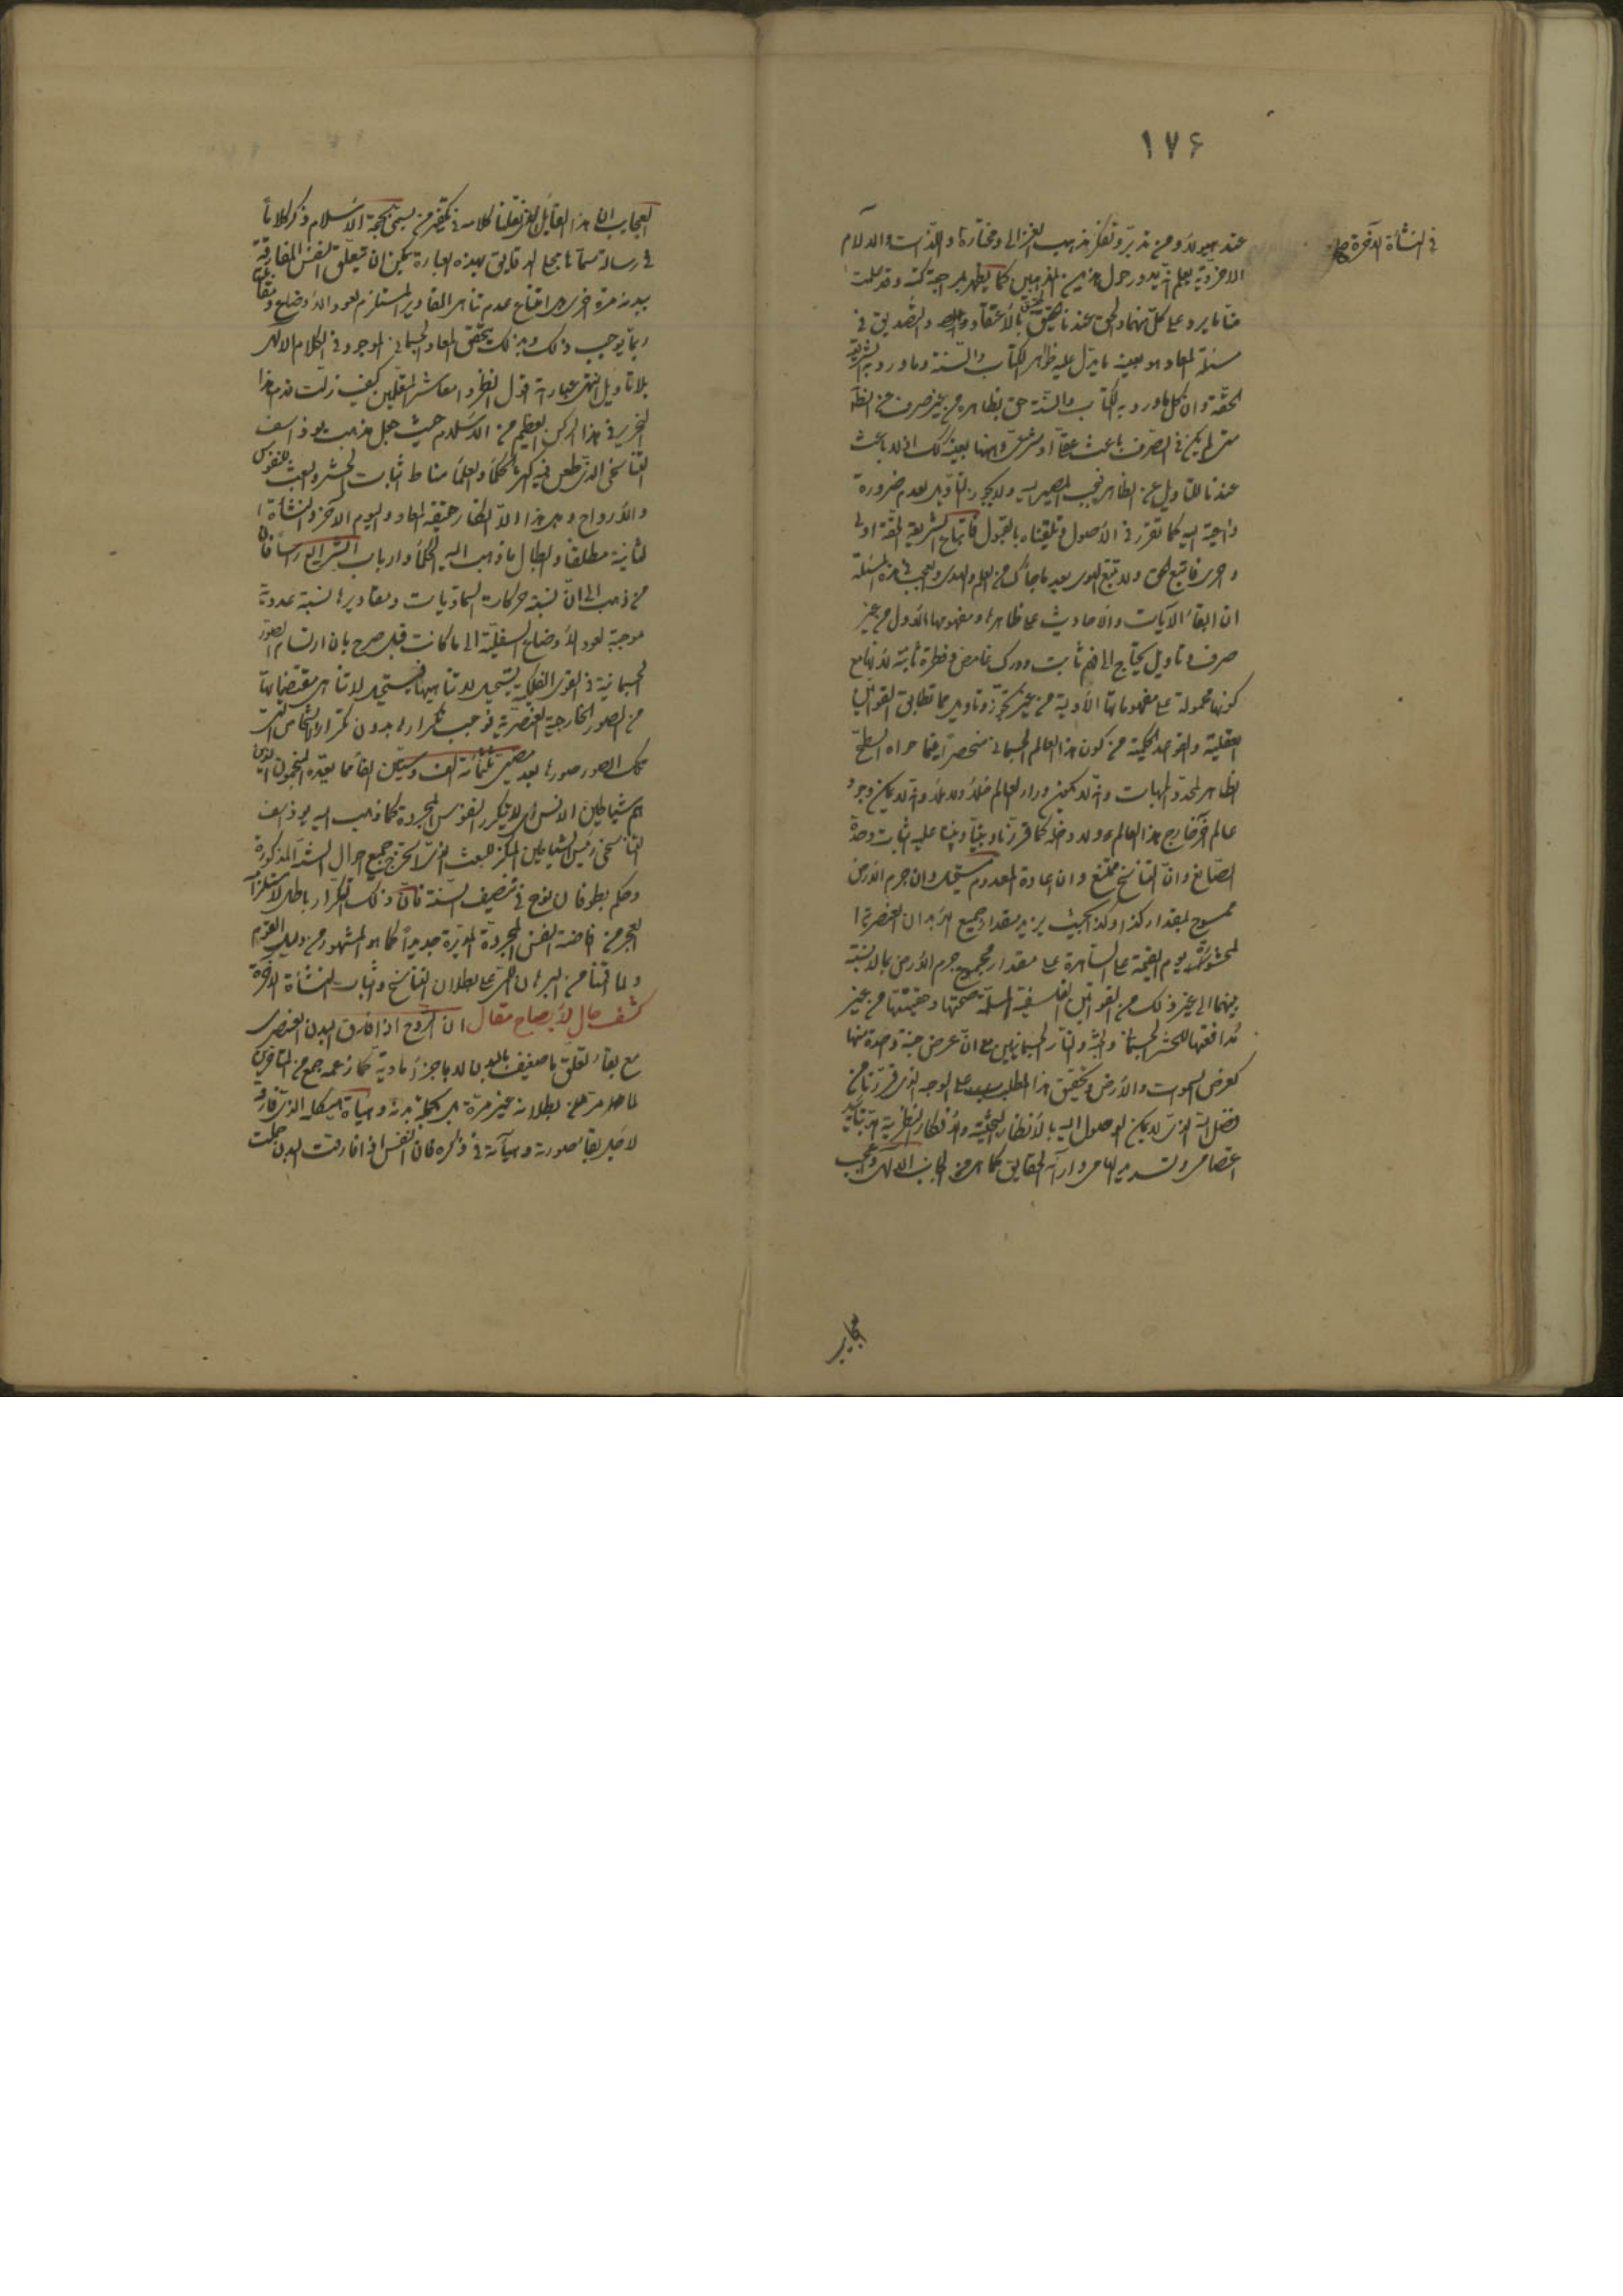 ١٧۶
عند هؤلاء ومن تدبر وتفكر مذهب الغزالي ومختاره فى اللذات والالام
فى النشأة الاخرة
الاخروية يعلم انه يدور حول هذين المذهبين كما يظهر بمراجعة كتبه وقد علمت
منا ما يرد على كل منهما والحق عندنا بالاعتقاد والتصديق فى
مسئلة المعاد هو بعينه ما يدل عليه ظواهر الكتاب والسنة وما ورد به الشريعة
الحقة وان كل ما ورد به الكتاب والسنة حق بظاهره من غير صرف عن الظا
متى لم يكن فى الصرف باعث عقلى او شرعى وههنا بعينه كك اذ لا باعث
عندنا للتاويل عن الظاهر فيجب المصير اليه ولا يجوز التاويل لعدم ضرورة
داعية اليه كما تقرر فى الاصول وتلقيناه بالقبول فاتباع الشريعة الحقة اولى
واحرى فاتبع الحق ولا تتبع الهوى بعد ما جاءك من العلم والهدى والعجب فى هذه المسئلة
ان ابقاء الايات والاحاديث على ظاهرها ومفهومها الاول من غير
صرف وتاويل يحتاج الى فهم ثابت ودرك غامض وفطرة ثانية لانها مع
كونها محمولة على مفهوماتها الاولية من غير تجوز وتاويل مما تطابق القوانين
العقلية والقواعد الحكمية من كون هذا العالم الجسمانى منحصرا فيما حواه السطح
الظاهر لمحدد الجهات وانه لا يكون وراء العالم خلاء ولا ملاء وانه لا يمكن وجود
عالم اخر خارج هذا العالم ولا داخله كما قررناه وبيناه وبنينا عليه اثبات وحدة
الصانع وان التناسخ ممتنع وان اعادة المعدوم مستحيل وان جرم الارض
ممسوح بمقدار كذا وكذا بحيث يزيد مقدار جميع الابدان العنصرية ا
لمحشورة يوم القيمة على الساهرة على مقدار مجموع جرم الارض بالانسبة
بينهما الى غير ذلك من القوانين الفلسفية المسلمة صحتها وحقيتها من غير
مدافعتها للحشر الجسمانى والجنة والنار الجسمانيين مع ان عرض جنة واحدة منها
كعرض السموات والارض وتحقيق هذا المطلب على الوجه الذى قررنا من
فضل الله الذى لا يمكن الوصول اليه بالانظار البحثية والافكار النظرية الا بتاييد
اعتصامى وتسديد الهامى واراءة الحقايق كما هى من الجانب الالهى وعجب
عجايب
العجايب ان هذا القايل الذى نقلنا كلامه فى تكفير من يسمى بحجة الاسلام ذكر كلاما
فى رسالة سماها بمجلى الدقايق بهذه العبارة يمكن ان يتعلق النفس المفارقة
ببدنه مرة اخرى امتناع عدم تناهى المقادير المستلزم لعود الاوضاع
ربما يوجب ذلك وبذلك يتحقق المعاد الجسمانى الموجود فى الكلام الالهى
بلا تاويل انتهى عبارته اقول انظروا معاشر العاقلين كيف زلت قدم هذا
النحرير فى هذا الركن العظيم من الاسلام حيث جعل مذهب يوذاسف
التناسخى الذى طعن فيه اكثر الحكماء والعلماء مناط اثبات الحشر والبعث للنفوس
والارواح وهل هذا الا انكار حقيقة المعاد واليوم الاخر والنشأة ا
لثانية مطلقا وابطال ما ذهب اليه الحكماء وارباب الشرايع راسا فان
من ذهب الى ان نسبة حركات السماويات ومقاديرها نسبة عددية
موجبة لعود الاوضاع السفلية الى ما كانت قبل صرح بان ارتسام الصور
الجسمانية فى القوى الفلكية يستحيل لا تناهيها فيستحيل لا تناهى مقتضياتها
من الصور الخارجية العنصرية فوجب تكرارها بدون تكرار الاشخاص
تلك الصور صورها بعد مضى ثلثمائة الف وستين الفا مما يعتبره المنجمون الذين
هم شياطين الانس اذ لا يتكرر النفوس المجردة كما ذهب اليه يوذاسف
التناسخى رئيس الشياطين المنكر للبعث الذى استخرج جميع احوال السنة المذكورة
وحكم بطوفان نوح فى تنصيف السنة فان ذلك التكرار باطل لاستلزام
العجز من افاضة النفس المجردة المدبرة جديدا كما هو المشهور من دليل القوم
ولما اقمنا من البرهان اللمى على بطلان التناسخ واثبات النشأة الاخرة
كشف حال لايضاح مقال ان الروح اذا فارق البدن العنصرى
مع بقاء تعلق ما ضعيف بالبدن لا باجزاء مادية كما زعمه جمع من المتاخرين
لما ظهر من بطلانه غير مرة بل بجملة بدنه وهيأة هيكله الذى فارقه
لاجل بقاء صورته وهيأته فى ذكره فان النفس اذا فارقت البدن حملت